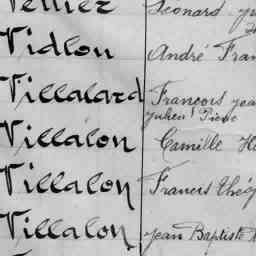 Léonard
Vidlon André Fran
Villalard François Jean
Julien Pierre
Villalon Camille H
Villalon Francis Thég
Villalon Jean Baptiste